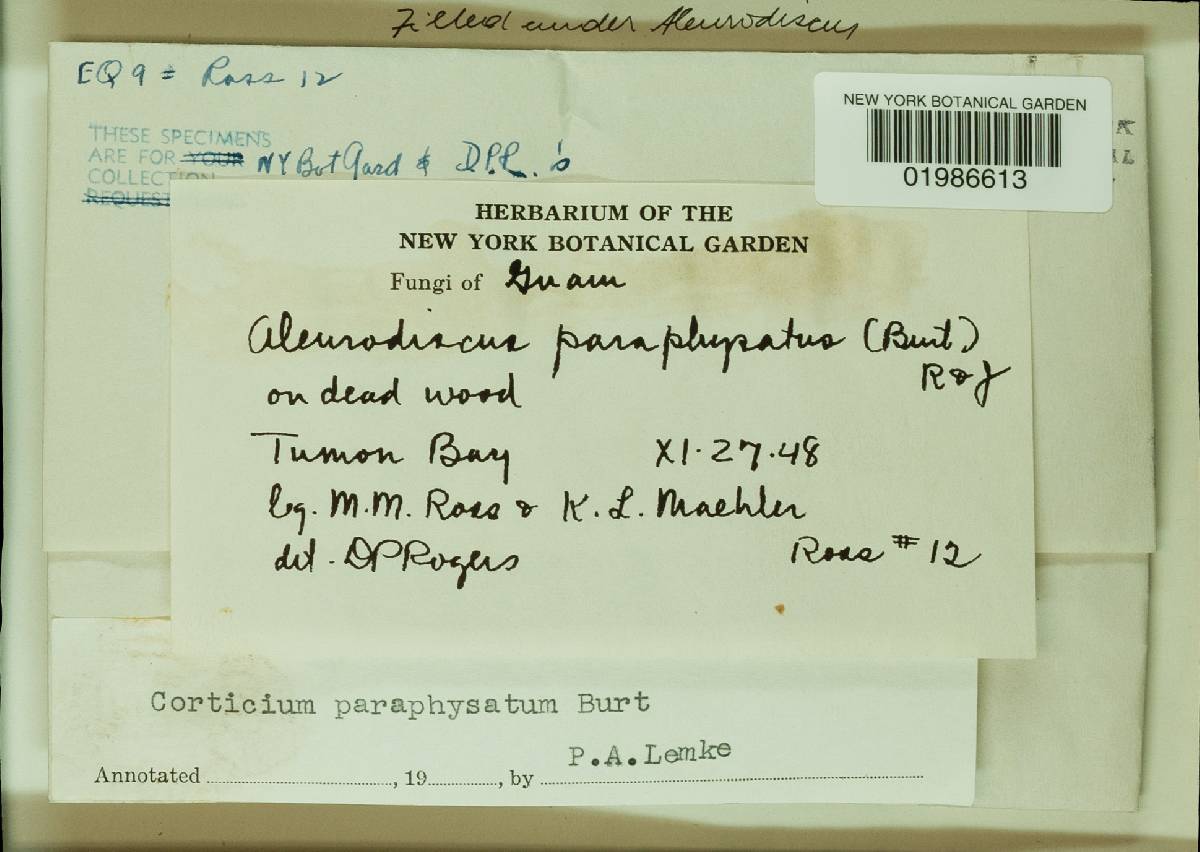 Filed under Aleurodiscus
EQ 9 = Ross 12
THESE SPECIMENS
ARE FOR YOUR NY Bot Gard & D.P.R.'s
COLLECTION
REQUEST
NEW YORK BOTANICAL GARDEN
01986613
HERBARIUM OF THE
NEW YORK BOTANICAL GARDEN
Fungi of Guam
Aleurodiscus paraphysatus (Burt)
R & J
on dead wood
Tumon Bay XI·27·48
leg. M.M. Ross & K. L. Maehler
det. DPRogers Ross #12
Corticium paraphysatum Burt
P.A.Lemke
Annotated, 19, by